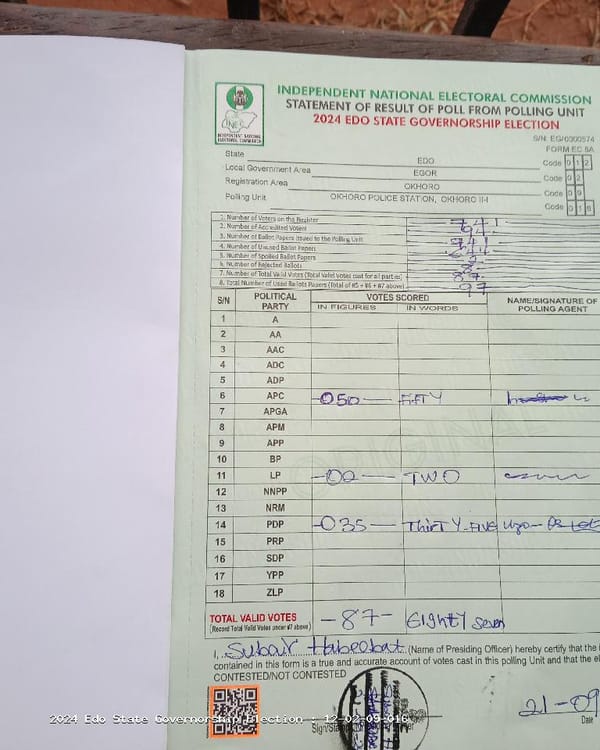 INDEPENDENT NATIONAL ELECTORAL COMMISSION
STATEMENT OF RESULT OF POLL FROM POLLING UNIT
2024 EDO STATE GOVERNORSHIP ELECTION
FORM EC 8A
State EDO Code 0 1 2
Local Government Area EGOR Code 0 2
Registration Area OKHORO Code 0 9
Polling Unit OKHORO POLICE STATION, OKHORO II-I Code 0 1 6
1. Number of Voters on the Register 741
2. Number of Accredited Voters
3. Number of Ballot Papers Issued to the Polling Unit 741
4. Number of Unused Ballot Papers
5. Number of Spoiled Ballot Papers
6. Number of Rejected Ballots
7. Number of Total Valid Votes (Total Valid Votes cast for all parties) 87
8. Total Number of Used Ballots Papers (Total of #5 + #6 + #7 above) 97
S/N POLITICAL PARTY VOTES SCORED NAME/SIGNATURE OF POLLING AGENT
IN FIGURES IN WORDS
1 A
2 AA
3 AAC
4 ADC
5 ADP
6 APC 050 FIFTY
7 APGA
8 APM
9 APP
10 BP
11 LP 02 TWO
12 NNPP
13 NRM
14 PDP 035 THIRTY-FIVE
15 PRP
16 SDP
17 YPP
18 ZLP
TOTAL VALID VOTES -87- Eighty Seven
(Record Total Valid Votes under #7 above)
I, Subair Habeebat (Name of Presiding Officer) hereby certify that the
contained in this form is a true and accurate account of votes cast in this polling Unit and that the
CONTESTED/NOT CONTESTED
21-09
Date
2024 Edo State Governorship Election : 12-02-09-016